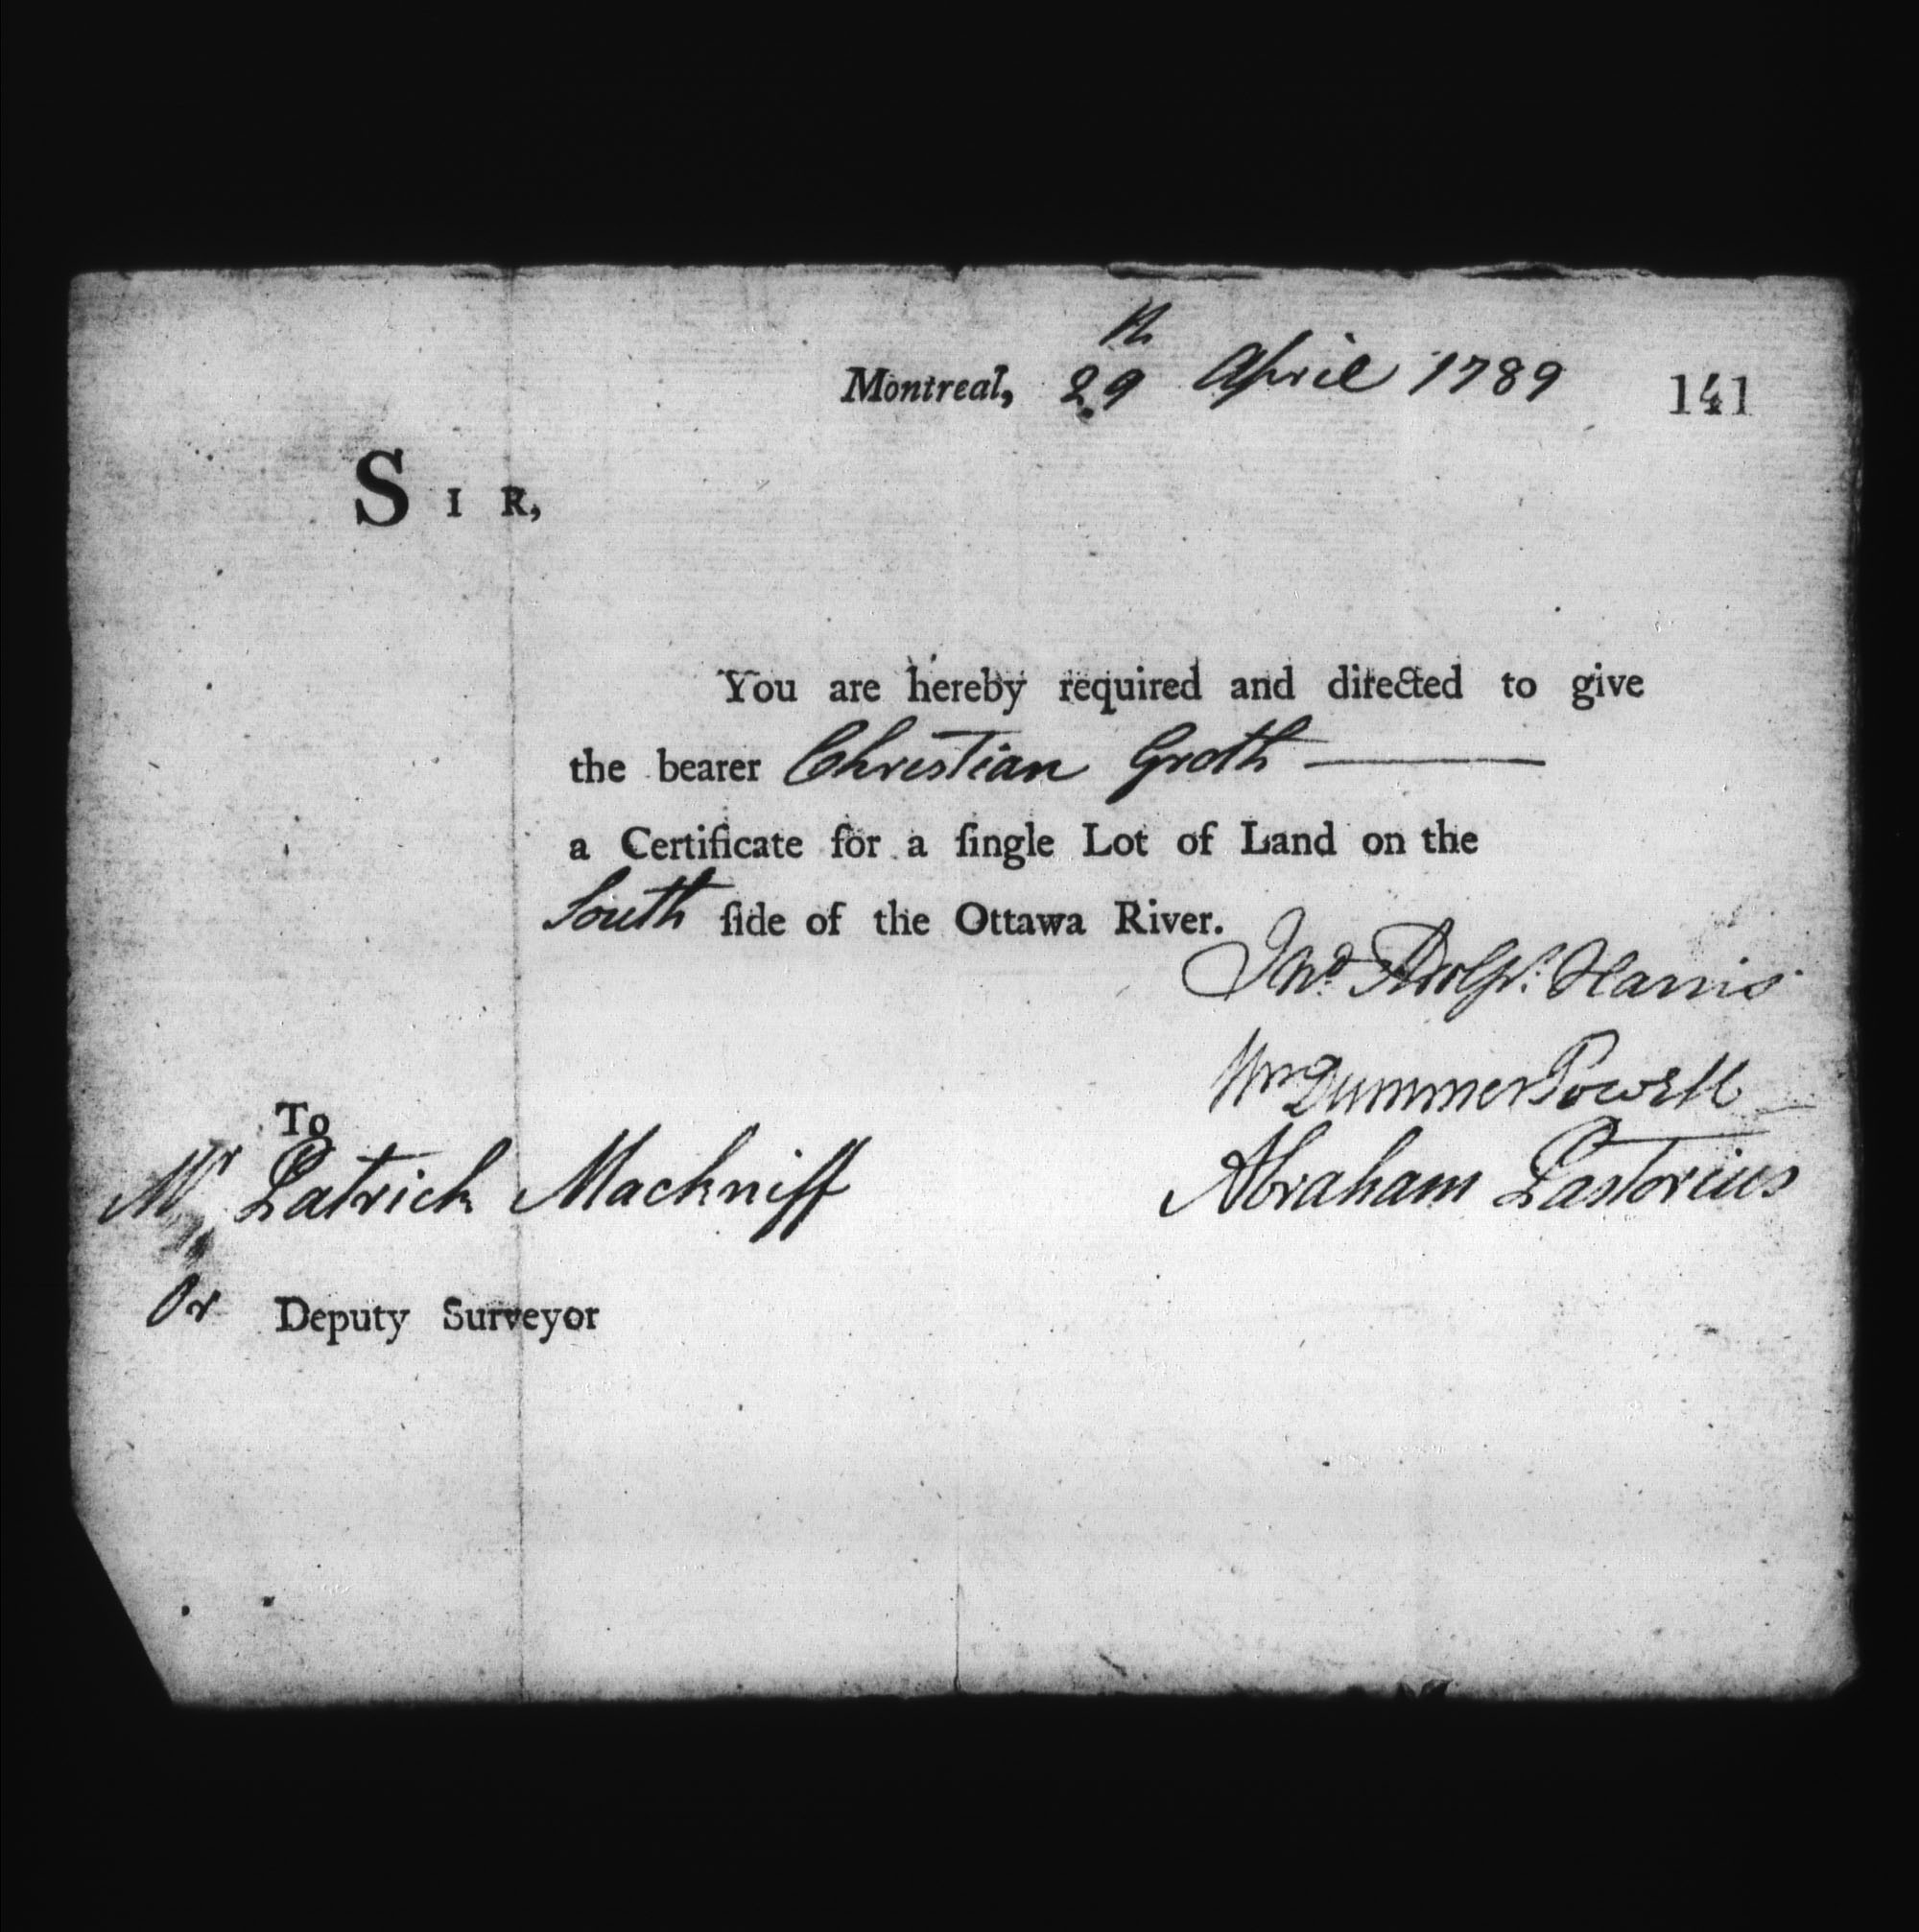 Montreal, 29th April 1789 141
SIR,
You are hereby required and directed to give
the bearer Christian Groth
a Certificate for a ſingle Lot of Land on the
South ſide of the Ottawa River.
Adolps. Harris
Wm Dummer Powell
To
Mr Patrick Mackniff
Abraham Pastorius
Or Deputy Surveyor